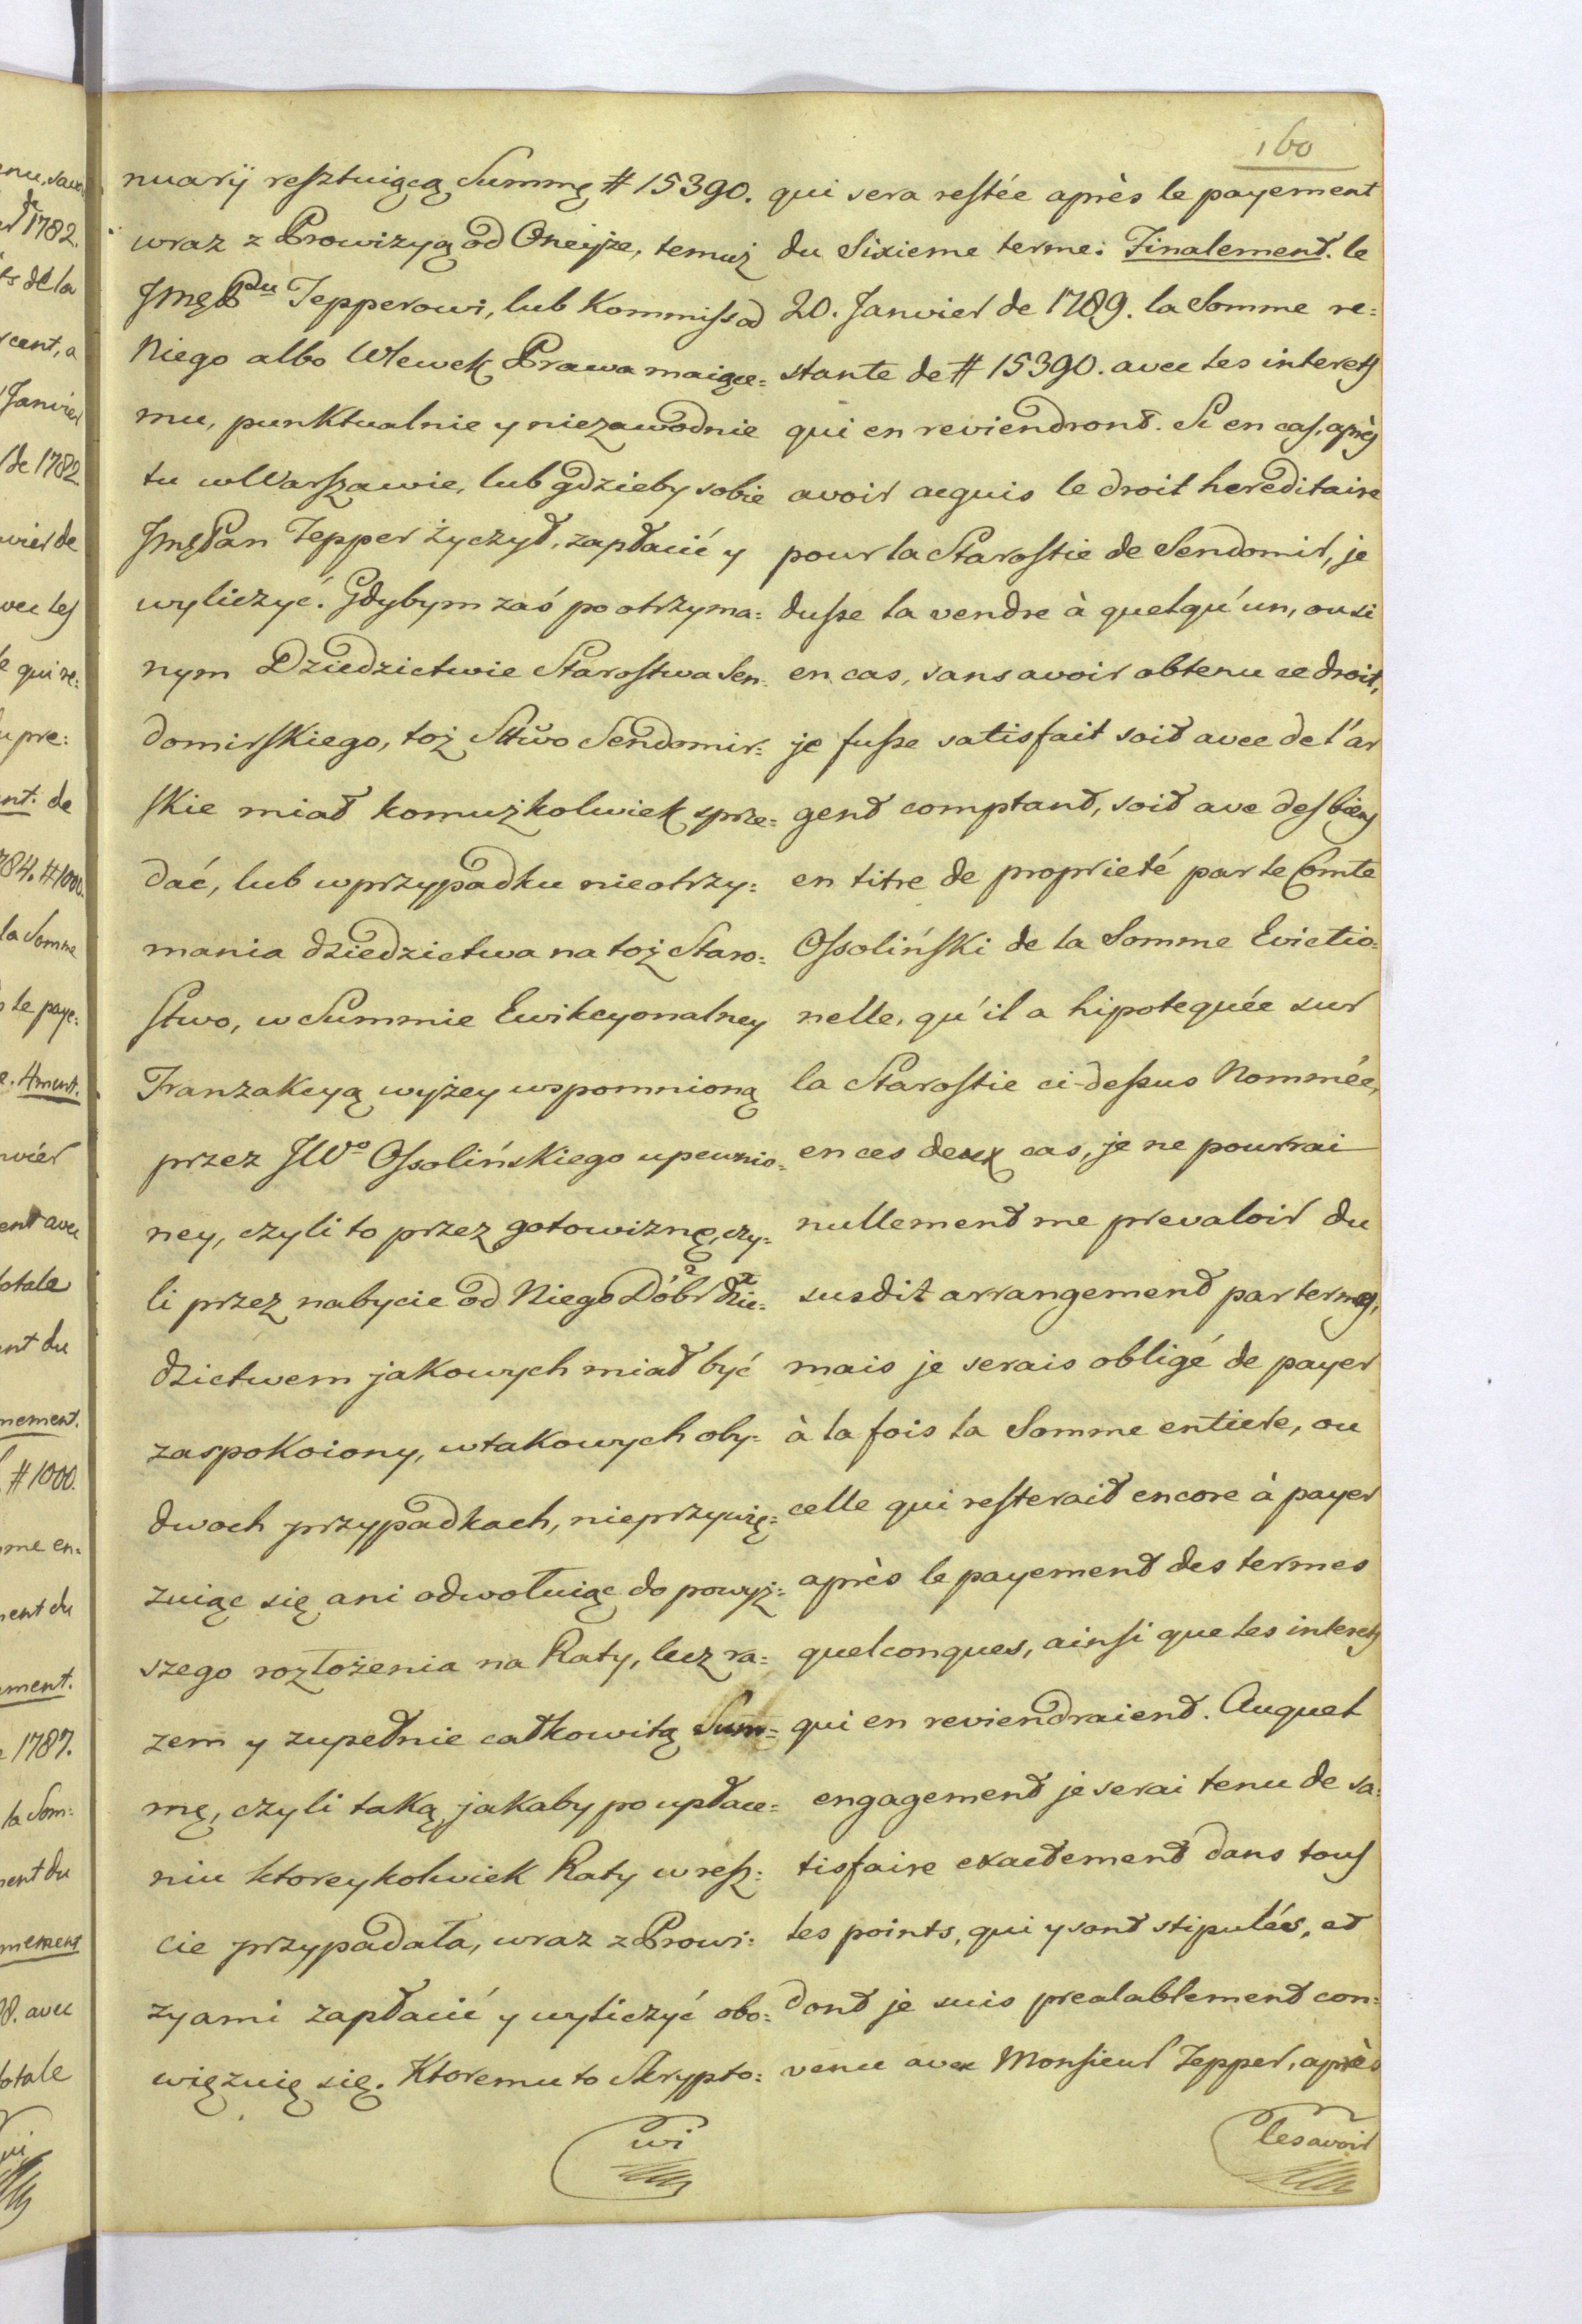 160
nuarij resztuiącą Summę # 15390.
wraz z Prowizyą od Oneyże, temuż
JmęPnu Tepperowi, lub Kommiss od
Niego albo Wlewek Prawa maiące=
mu, punktualnie y niezawodnie
tu w Warszawie, lub gdzieby sobie
JmęPan Tepper życzył, zapłacić y
wyliczyć. Gdybym zaś po otrzyma=
nym Dziedzictwie Starostwa Sen=
domirskiego, toż Sttwo Sendomir=
skie miał komużkolwiek sprze=
dać, lub w przypadku nieotrzy=
mania dziedzictwa na toż Staro=
stwo, w Summie Ewikcyonalney
Tranzakcyą wyżey wspomnioną
przez JWo Ossolińskiego upewnio=
ney, czyli to przez gotowiznę, czy=
li przez nabycie od Niego Dóbr dzie=
dzictwem jakowych miał być
zaspokoiony, w takowych oby=
dwoch przypadkach, nieprzywię=
zuiąc się ani odwołuiąc do powyż=
szego rozłożenia na Raty, lecz ra=
zem y zupełnie całkowitą Sum=
mę, czyli taką, jakaby po upłace=
niu ktoreykolwiek Raty w resz=
cie przypadała, wraz z Prowi=
zyami zapłacić y wyliczyć obo=
więzuię się. Ktoremu to Skrypto=
wi
qui sera restée après le payement
du Sixieme terme: Finalement. le
20. Janvier de 1789. la Somme re=
stante de # 15390. avec les interets
qui en reviendront. Si en cas, après
avoir acquis le droit hereditaire
pour la Starostie de Sendomir, je
dusse la vendre à quelqu'un, ou si
en cas, sans avoir obtenu ce droit,
je fusse satisfait soit avec de l'ar
gent comptant, soit ave des biens
en titre de proprieté par le Comte
Ossoliński de la Somme Evictio=
nelle, qu'il a hipotequée sur
la Starostie ci-dessus Nommée,
en ces deux cas, je ne pourrai
nullement me prevaloir du
susdit arrangement par termes,
mais je serais obligé de payer
à la fois la Somme entiere, ou
celle qui resterait encore à payer
après le payement des termes
quelconques, ainsi que les interets
qui en reviendraient. Auquel
engagement je serai tenu de sa=
tisfaire exactement dans tous
les points, qui y sont stipulés, et
dont je suis prealablement con=
venu avec Monsieur Tepper, après
les avoir